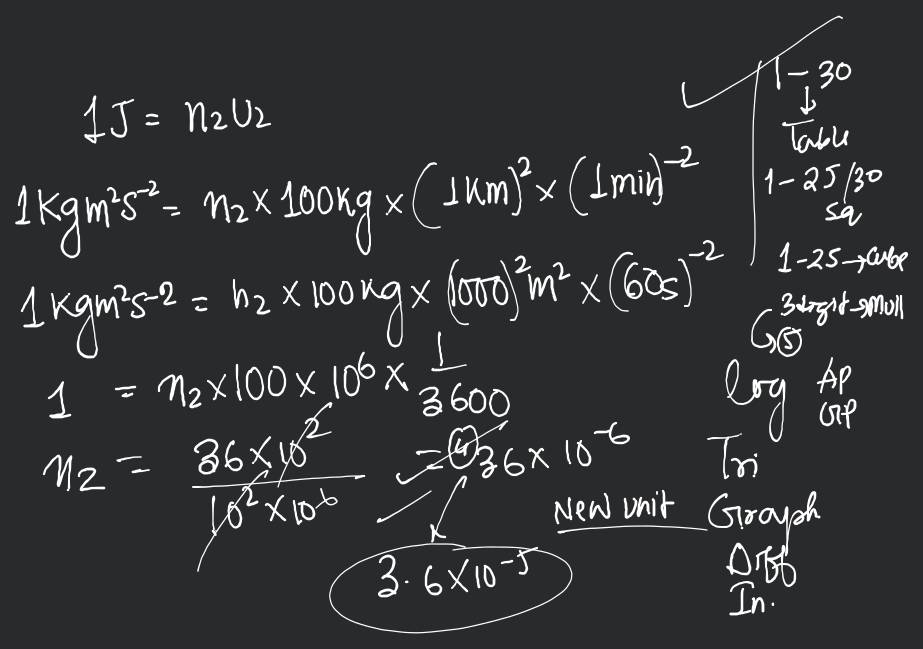 1J = n₂U₂
1Kgm²s⁻² = n₂ × 100kg × (1km)² × (1min)⁻²
1Kgm²s⁻² = n₂ × 100kg × (1000)²m² × (60s)⁻²
1 = n₂ × 100 × 10⁶ × 1/3600
n₂ = 36 × 10² / 10² × 10⁶ = 36 × 10⁻⁶
3.6 × 10⁻⁵
New unit
1 – 30
↓
Table
1 – 25/30
sq
1 – 25 → cube
3 digit → Mull
5
log AP
GP
Tri
Graph
Diff
In.